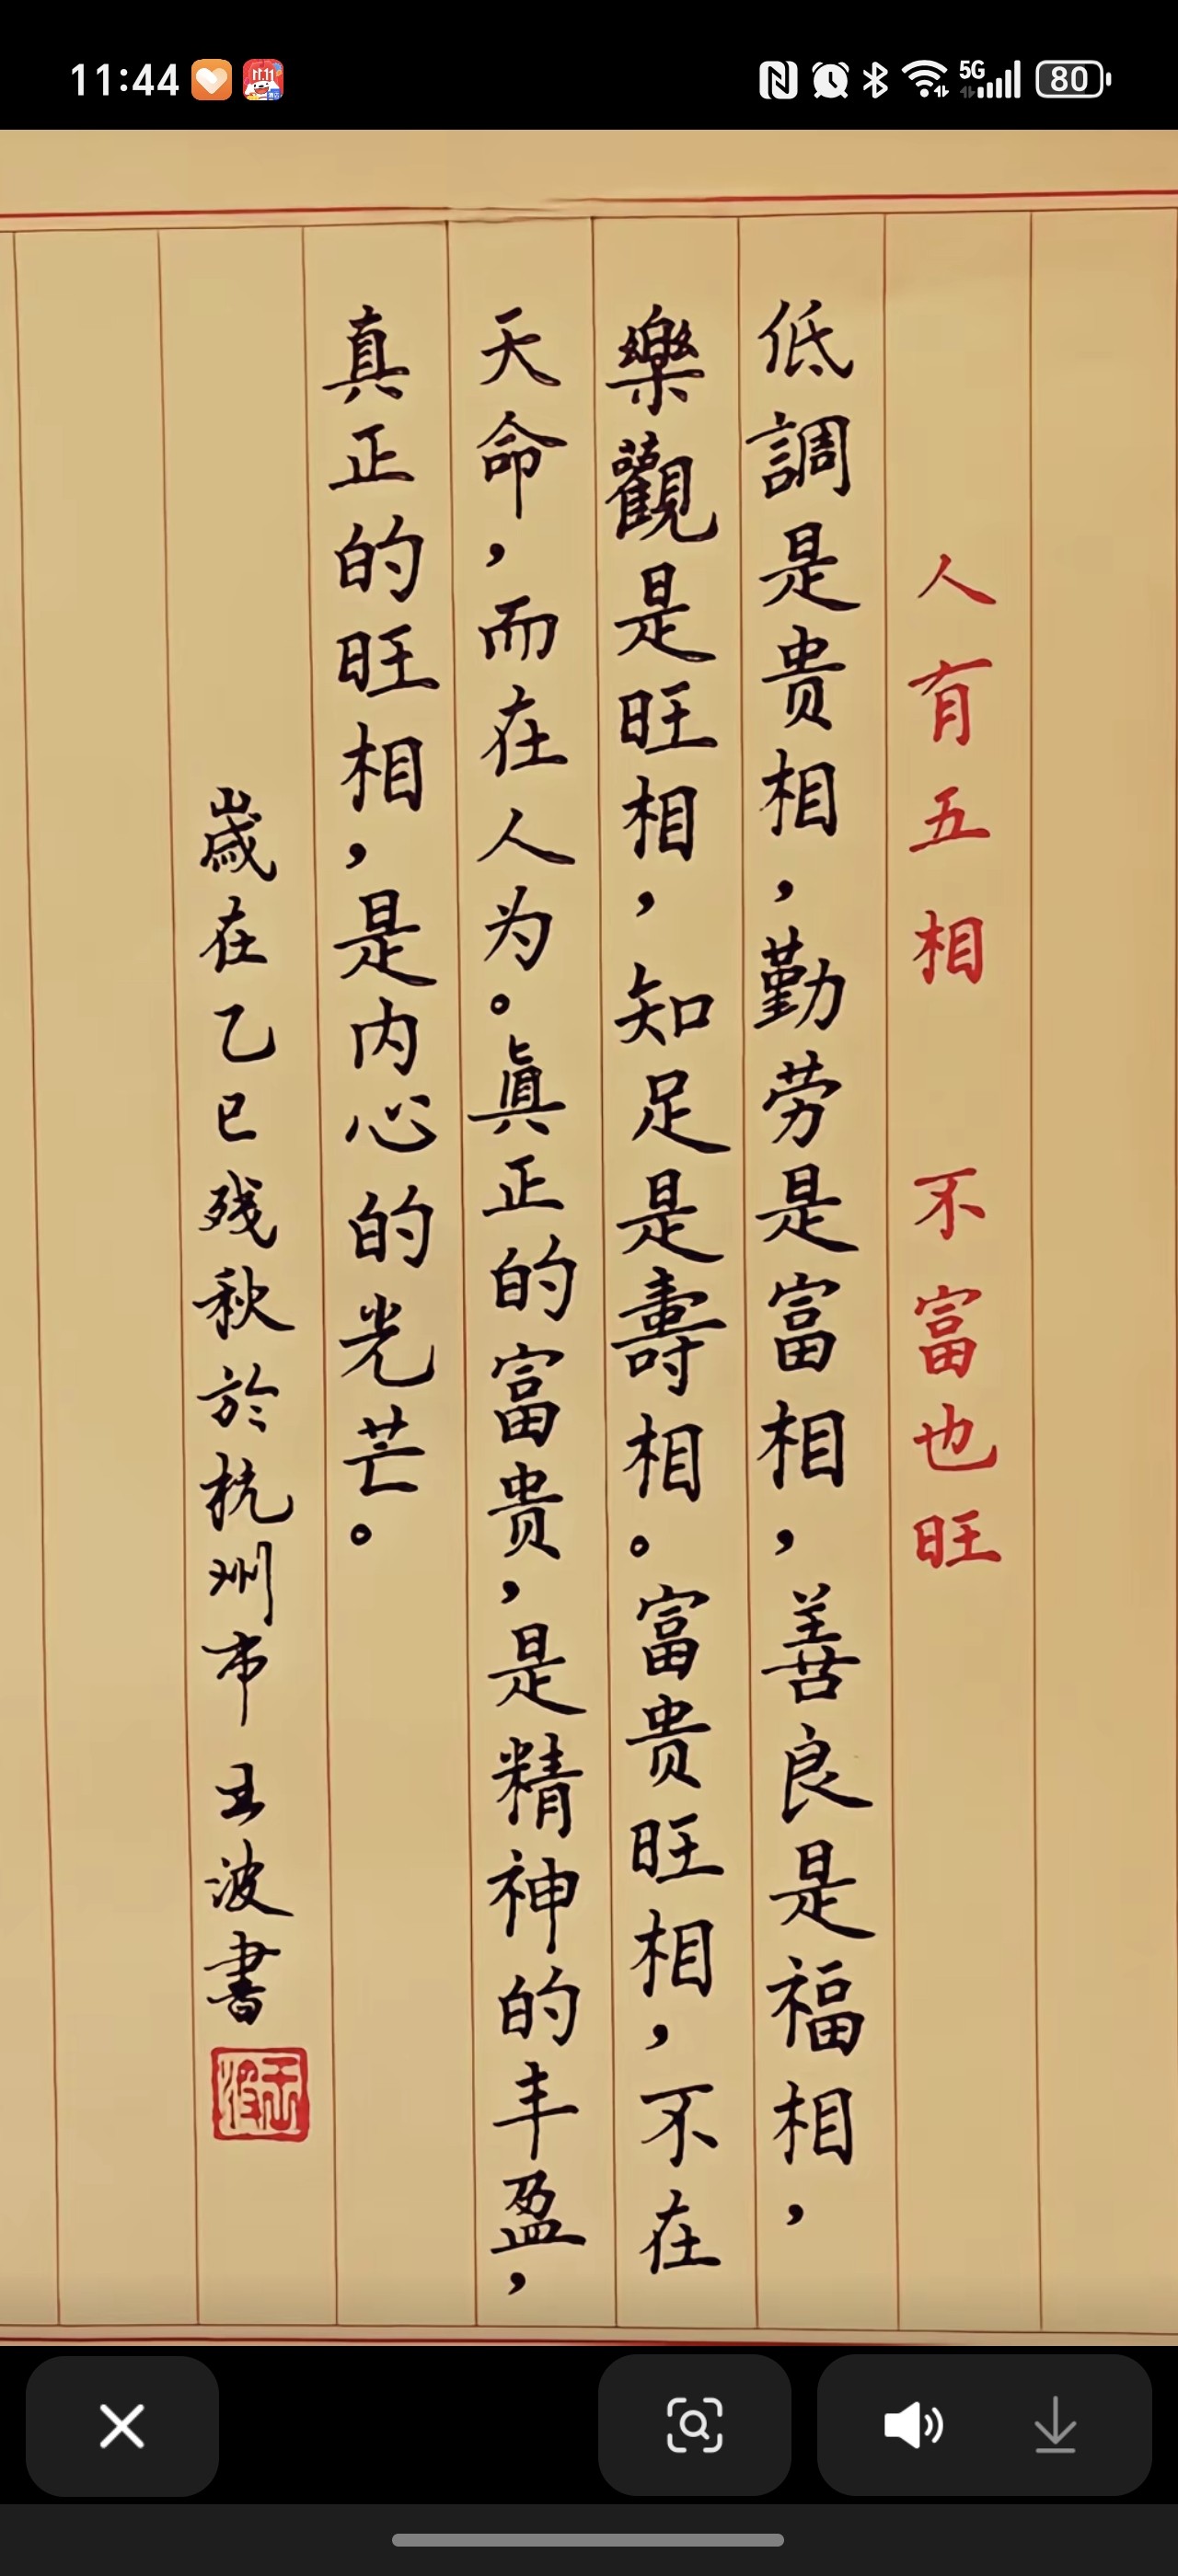 11:44
5G
80
人有五相 不富也旺
低調是贵相，勤劳是富相，善良是福相，
樂觀是旺相，知足是壽相。富贵旺相，不在
天命，而在人为。真正的富贵，是精神的丰盈，
真正的旺相，是内心的光芒。
歳在乙巳残秋於杭州市王波書